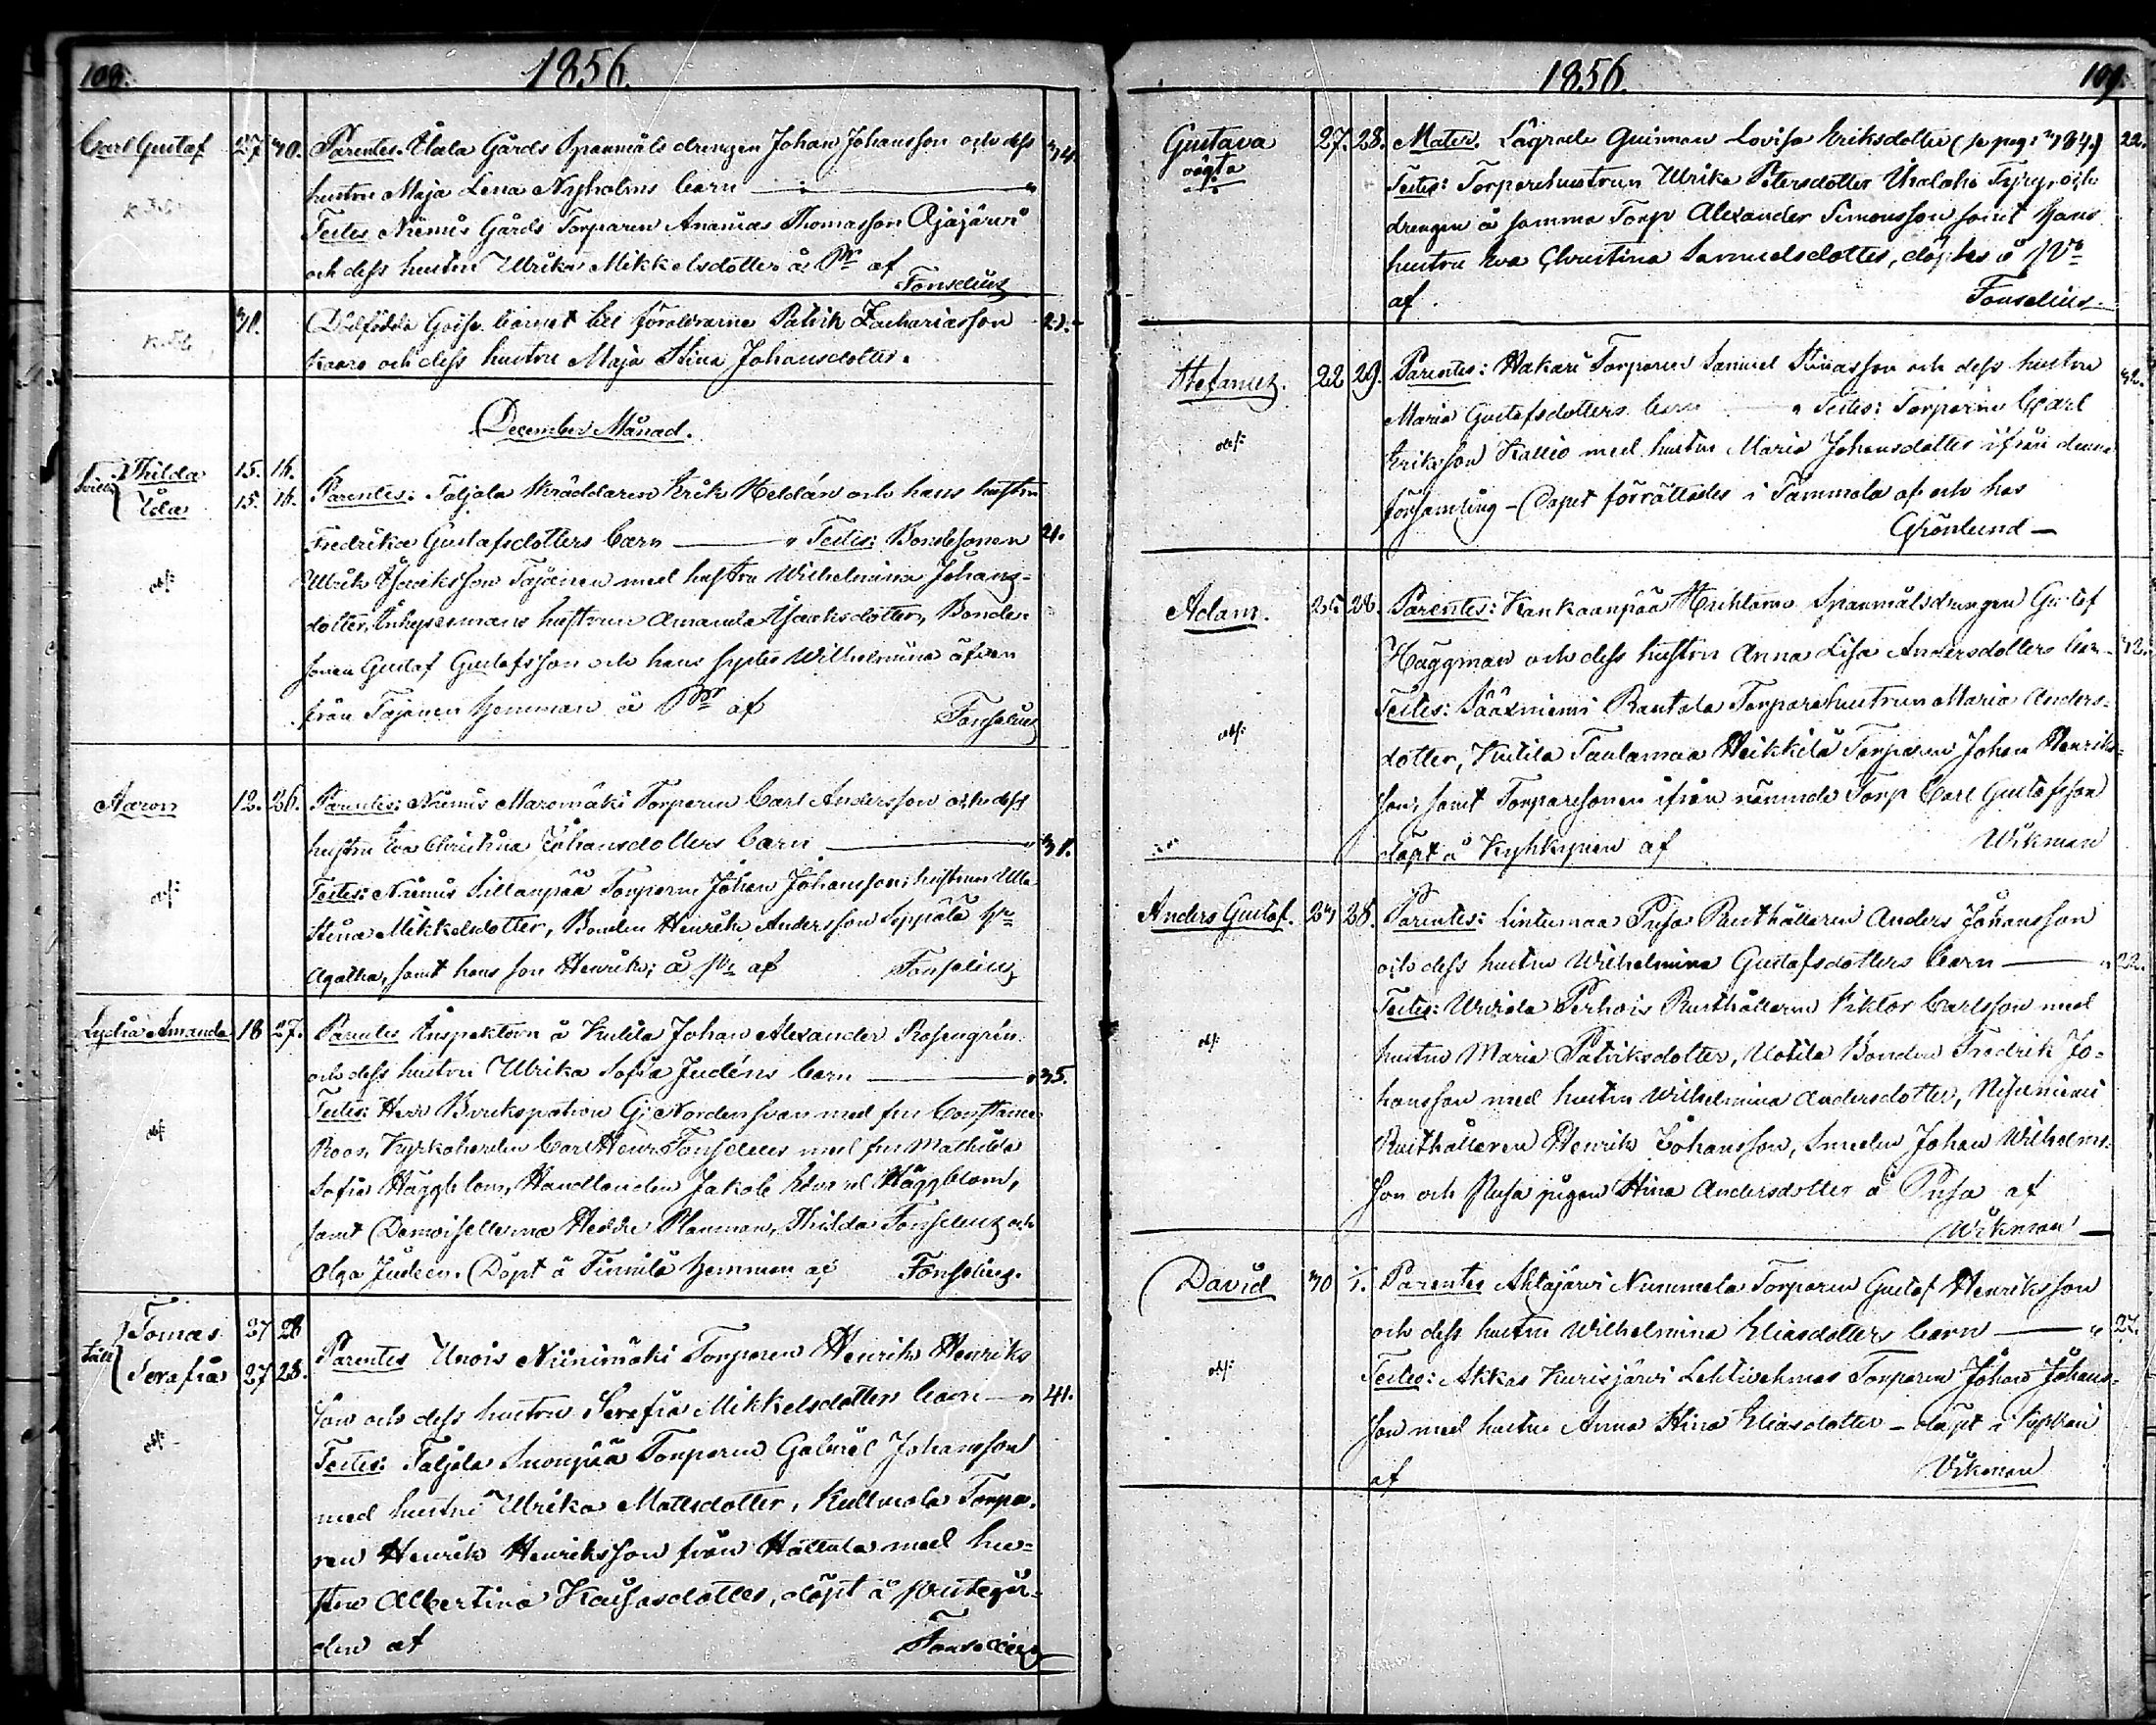 108.
1856.
Carl Gustaf 27 30. Parentes. Ålala Gårds Spanmåls drengen Johan Johansson och dess 34.
hustru Maja Lena Nyholms barn
Testes Niemis Gårds Torparen Ananias Thomasson Ojajärvi
och dess hustru Ulrika Mikkelsdotter å Pr af
Fonselius
30. Dödfödda Gosse barnet till föräldrarne Patrik Zachariasson
Kaaro och dess hustru Maja Stina Johansdotter.
December Månad.
Thilda 15. 16.
Ida 15. 16. Parentes: Taljala Skräddaren Erik Heldán och hans hustru
Fredrika Gustafsdotters barn Testes: Bondesonen 21.
Ulrik Isaaksson Tajanen med hustru Wilhelmina Johans-
dotter, Inhysesmans hustrun Amanda Isaaksdotter, Bonde-
sonen Gustaf Gustafsson och hans syster Wilhelmina äfven
från Tajanen hemman å Pr af
Fonselius
Aaron 12. 26. Parentes: Niemis Maromäki Torparen Carl Andersson och dess
hustru Eva Christina Johansdotters barn 31.
Testes: Niemis Sillanpää Torparen Johan Johansson, hustrun Ulla
Stina Mikkelsdotter, Bonden Henrik Andersson Seppälä
Agatha, samt hans son Henrik; å pr af Fonselius
Lydia Amanda 18 27. Parentes Inspektorn å Kutila Johan Alexander Rosengrén
och dess hustru Ulrika Sofia Judéns barn 35.
Testes: Herr Brukspatron G. Nordensvan med fru Constance
Roos, Kyrkoherden Carl Henr. Fonselius med fru Mathilda
Sofia Häggblom, Handlanden Jakob Edvard Häggblom,
samt Demoisellerna Hedda Planman, Thilda Fonselius och
Olga Judeen. Döpt å Finnilä hemman af Fonselius.
Tomas 27 28
Serafia 27 28. Parentes Urois Niinimäki Torparen Henrik Henriks
son och dess hustru Serafia Mikkelsdotters barn 41.
Testes: Taljala Suonpää Torparen Gabriel Johansson
med hustru Ulrika Mattsdotter, Kullmala Torpa-
ren Henrik Henriksson från Hattula med hu-
stru Albertina Kaisasdotter, döpt å prestegår-
den af Fonselius
1856.
109.
Gustava 27. 28. Mater. Lägrade Quinnan Lovisa Eriksdotter 22.
oägta Testes: Torparehustrun Ulrika Petersdotter
drengen å samma Torp Alexander Simonsson samt hans
hustru Eva Christina Samuelsdotter, döptes å
af Fonselius
Stefanus. 22 29. Parentes: Hakari Torparen Samuel och dess hustru 32.
Maria Gustafsdotters barn Testes: Torparen Carl
Eriksson Kallio med hustru Maria Johansdotter ifrån denna
församling – Dopet förrättades i Tammela af och hos
Grönlund
Adam. 25 28. Parentes: Kankaanpää Spanmålsdrengen Gustaf
Häggman och dess hustru Anna Lisa Andersdotters barn 32.
Testes: Sääxniemi Rautala Torparehustrun Maria Anders-
dotter, Kutila Taulamaa Heikkilä Torparen Johan Henriks-
son, samt Torparesonen ifrån nämnde Torp Carl Gustafsson
döpt å Kyhkynen af Wikman
Anders Gustaf. 23 28. Parentes: Lintumaa Pusa Rusthållaren Anders Johansson
och dess hustru Wilhelmina Gustafsdotters barn 22.
Testes: Urviala Perhois Rusthållaren Viktor Carlsson med
hustru Maria Patriksdotter, Uotila Bonden Fredrik Jo-
hansson med hustru Wilhelmina Andersdotter,
Rusthållaren Henrik Johansson, Smeden Johan Wilhelms-
son och Pusa pigan Stina Andersdotter å Pusa af
Wikman
David 30 1. Parentes Ahtajärvi Nummela Torparen Gustaf Henriksson
och dess hustru Wilhelmina Eliasdotters barn 27.
Testes: Akkas Kurisjärvi Lehtivehmas Torparen Johan Johans-
son med hustru Anna Stina Eliasdotter – döpt i kyrkan
af Vikman